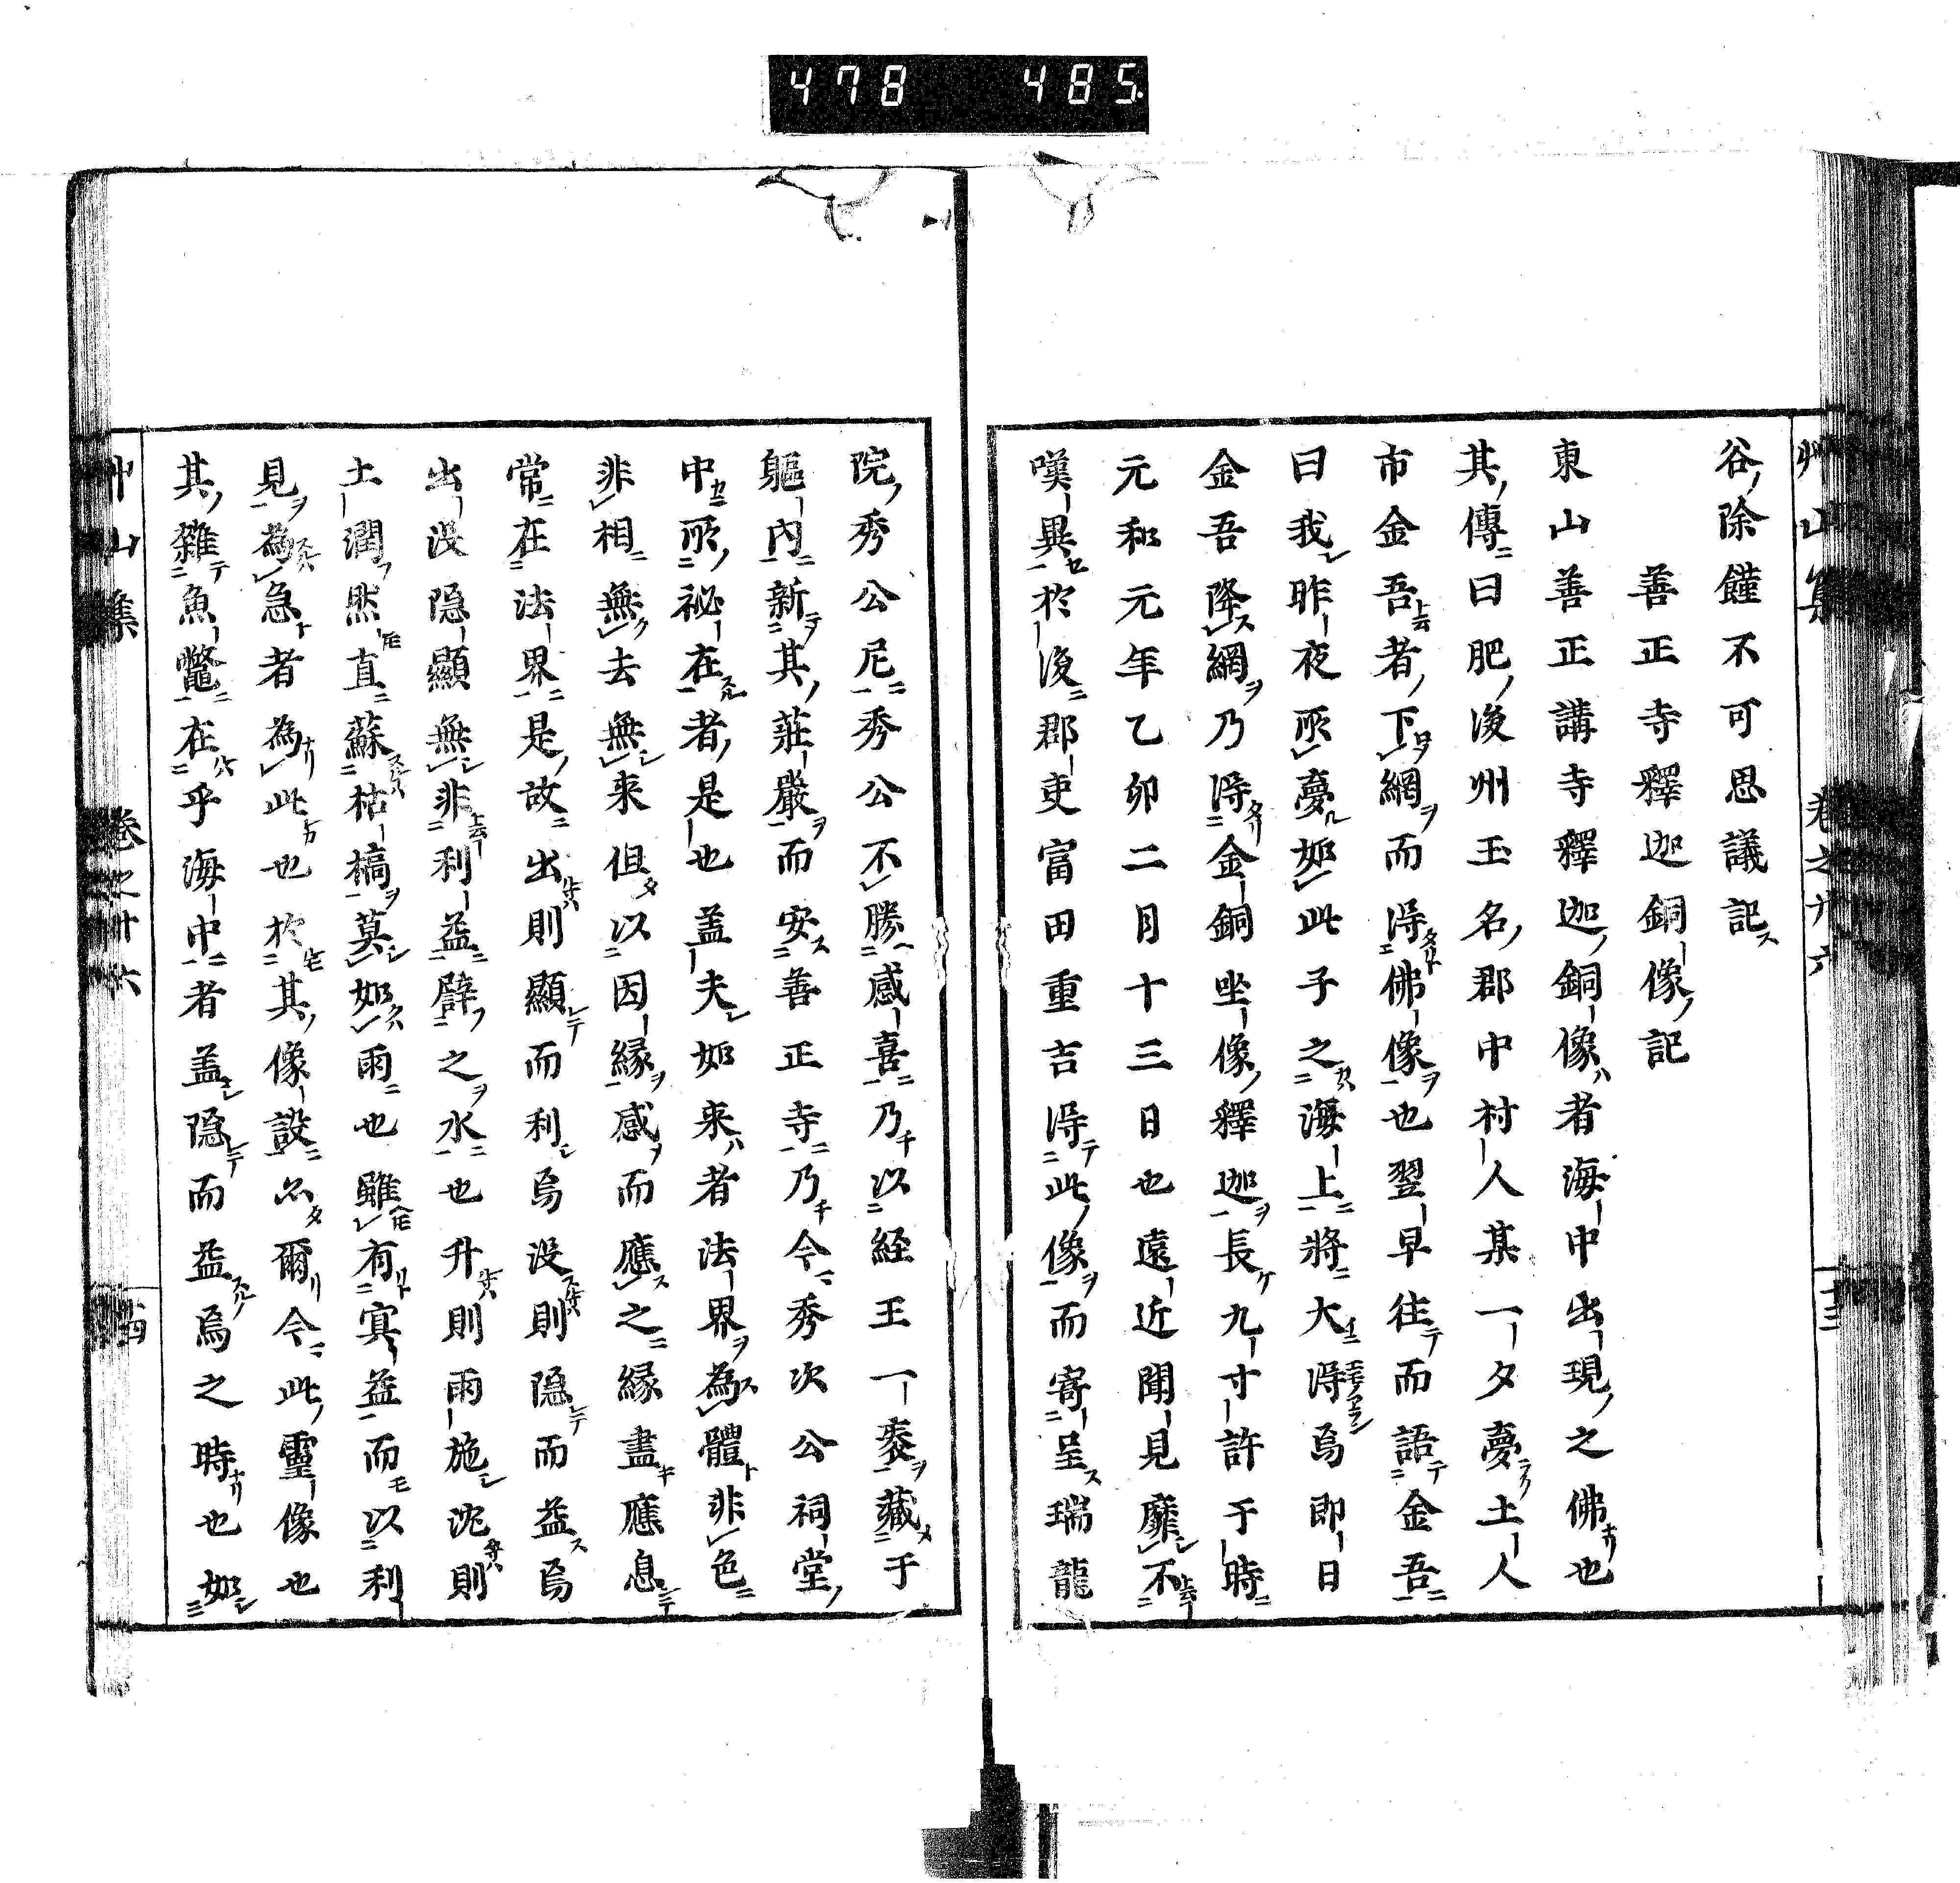 478 485
艸山集 卷之廿六 十三
谷除饉不可思議記
善正寺釋迦銅像記
東山善正講寺釋迦銅像者海中出現之佛也
其傳曰肥後州玉名郡中村人某一夕夢土人
市金吾者下網而得佛像也翌早往而語金吾
曰我昨夜所夢如此子之海上將大得焉即日
金吾降網乃得金銅坐像釋迦長九寸許于時
元和元年乙卯二月十三日也遠近聞見靡不
嘆異於後郡吏富田重吉得此像而寄呈瑞龍
院秀公尼秀公不勝感喜乃以経王一袠藏于
軀內新其莊嚴而安善正寺乃今秀次公祠堂
中所祕在者是也盖夫如来者法界為體非色
非相無去無来但以因縁感而應之縁盡應息
常在法界是故出則顯而利焉没則隐而益焉
出没隐顯無非利益辟之水也升則雨施沈則
土潤然直蘇枯槁莫如雨也雖有寘益而以利
見為急者為此也於其像設亦爾今此靈像也
其雜魚鼈在乎海中者盖隐而益焉之時也如
艸山集 卷之廿六 十四